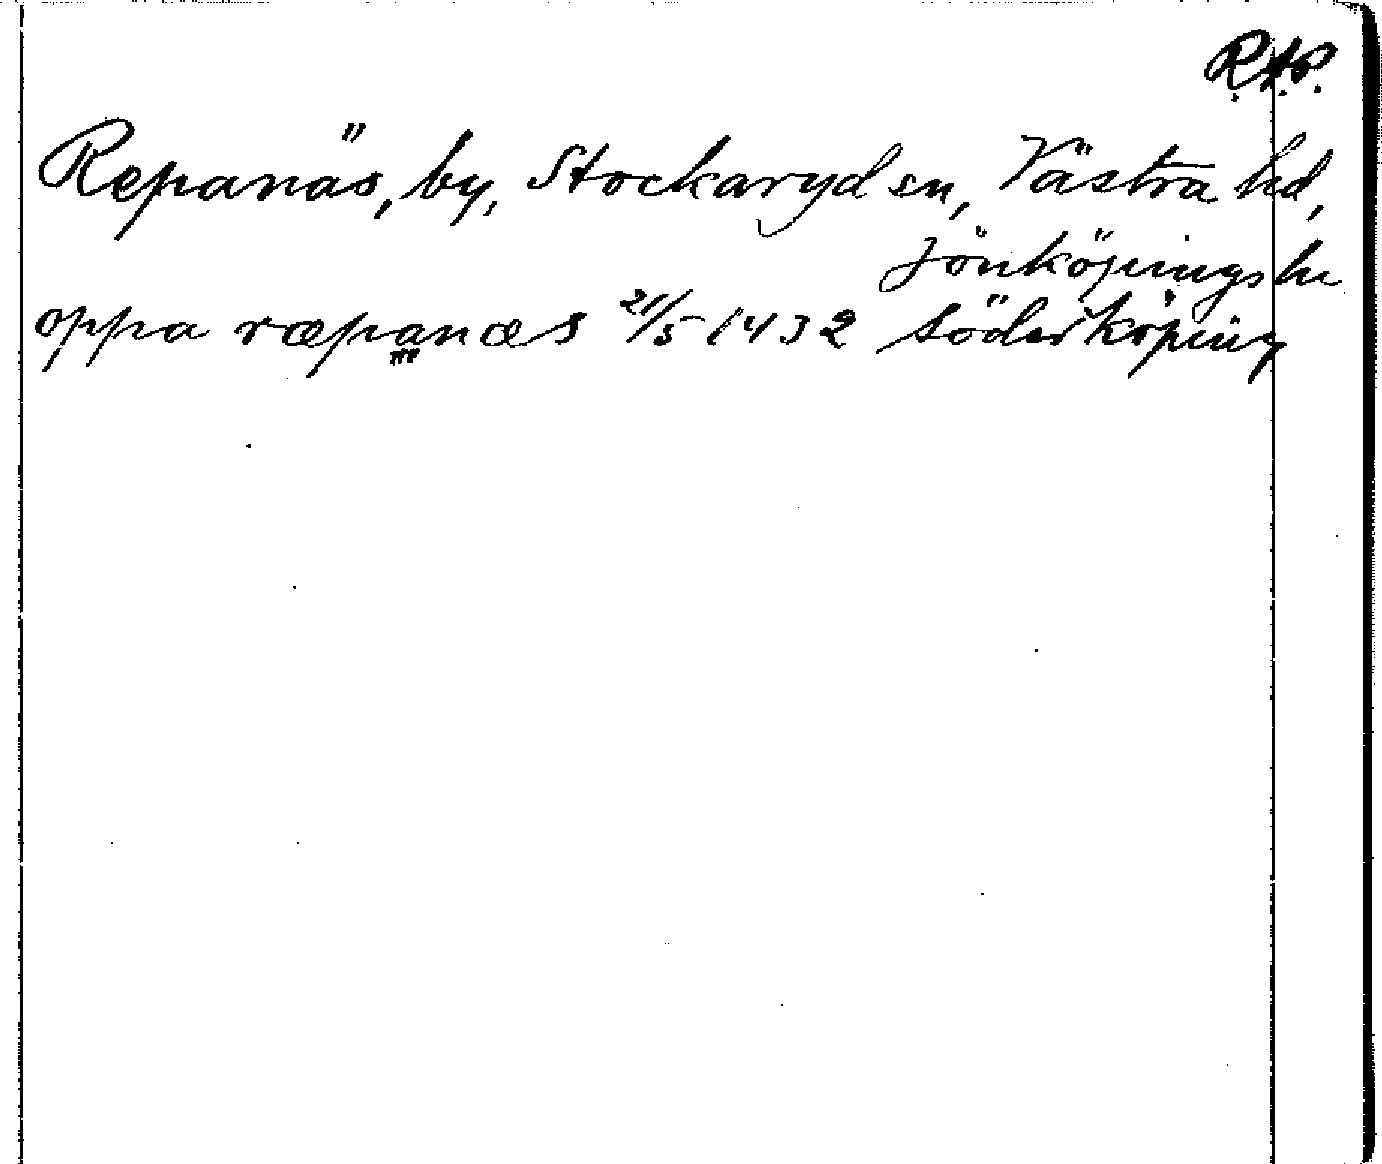 R.A.P.
Repanäs, by, Stockaryd sn, Västra hd,
Jönköpings ln
oppa ræpanæs 21/5 1432 Söderköping